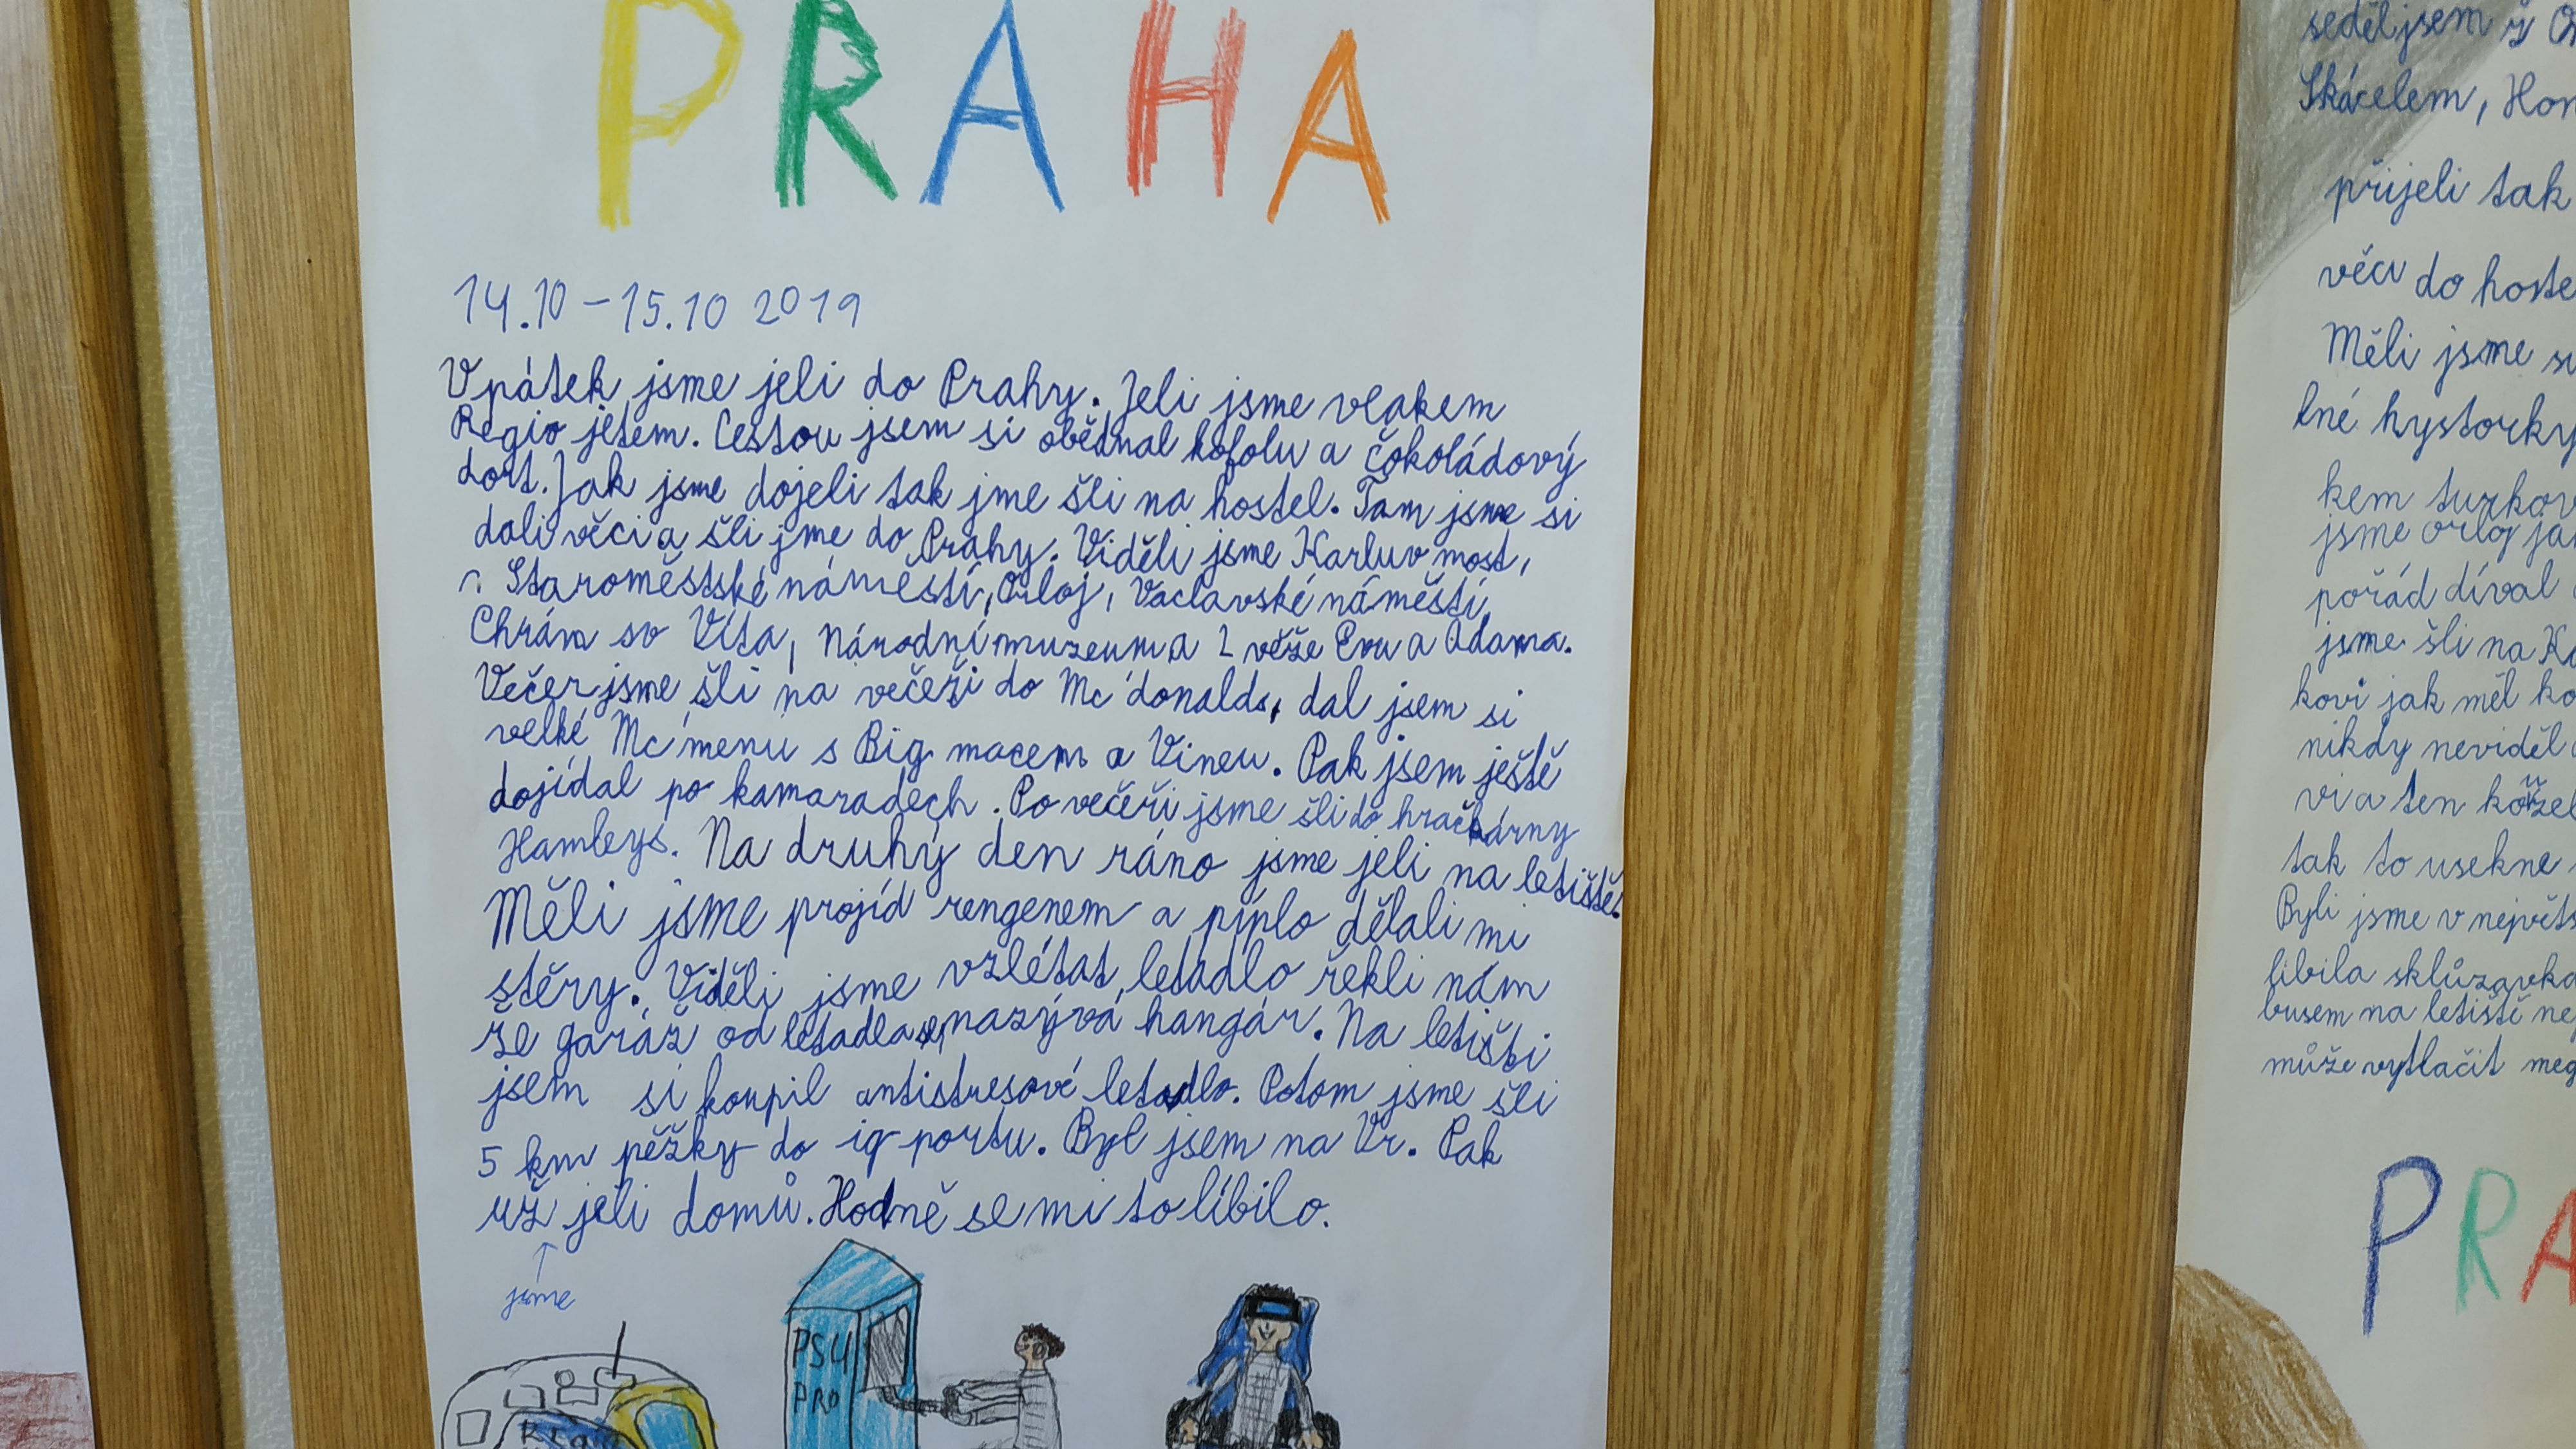 PRAHA
14.10 – 15.10 2019
V pátek jsme jeli do Prahy. Jeli jsme vlakem
Regio jetem. Cestou jsem si obědnal kofolu a čokoládový
dort. Jak jsme dojeli tak jme šli na hostel. Tam jsme si
dali věci a šli jme do Prahy. Viděli jsme Karluv most,
Staroměstské náměstí, Orloj, Vaclavské náměstí,
Chrám sv Víta, Národní muzeum a 2 věže Evu a Adama.
Večer jsme šli na večeři do Mc'donalds, dal jsem si
velké Mc'menu s Big macem a Vineu. Pak jsem ještě
dojídal po kamaradech. Po večeři jsme šli do hračkárny
Hamleys. Na druhý den ráno jsme jeli na letiště.
Měli jsme projíd rengenem a píplo dělali mi
stěry. Viděli jsme vzlétat letadlo řekli nám
že garáž od letadla se nazývá hangár. Na letišti
jsem si koupil antistresové letadlo. Potom jsme šli
5 km pěžky do iq portu. Byl jsem na Vr. Pak
už jeli domů. Hodně se mi to líbilo.
jsme
PS4
PRO
seděl jsem
Skácelem, Hon
přijeli tak
věci do hoste
Měli jsme
lné hystorky
kem
jsme orloj
pořád díval
jsme šli na
kovi jak měl
nikdy neviděl
vi a ten
tak to usekne
Byli jsme v největš
líbila sklůzavka
busem na letiští ne
může vytlačit
PRA